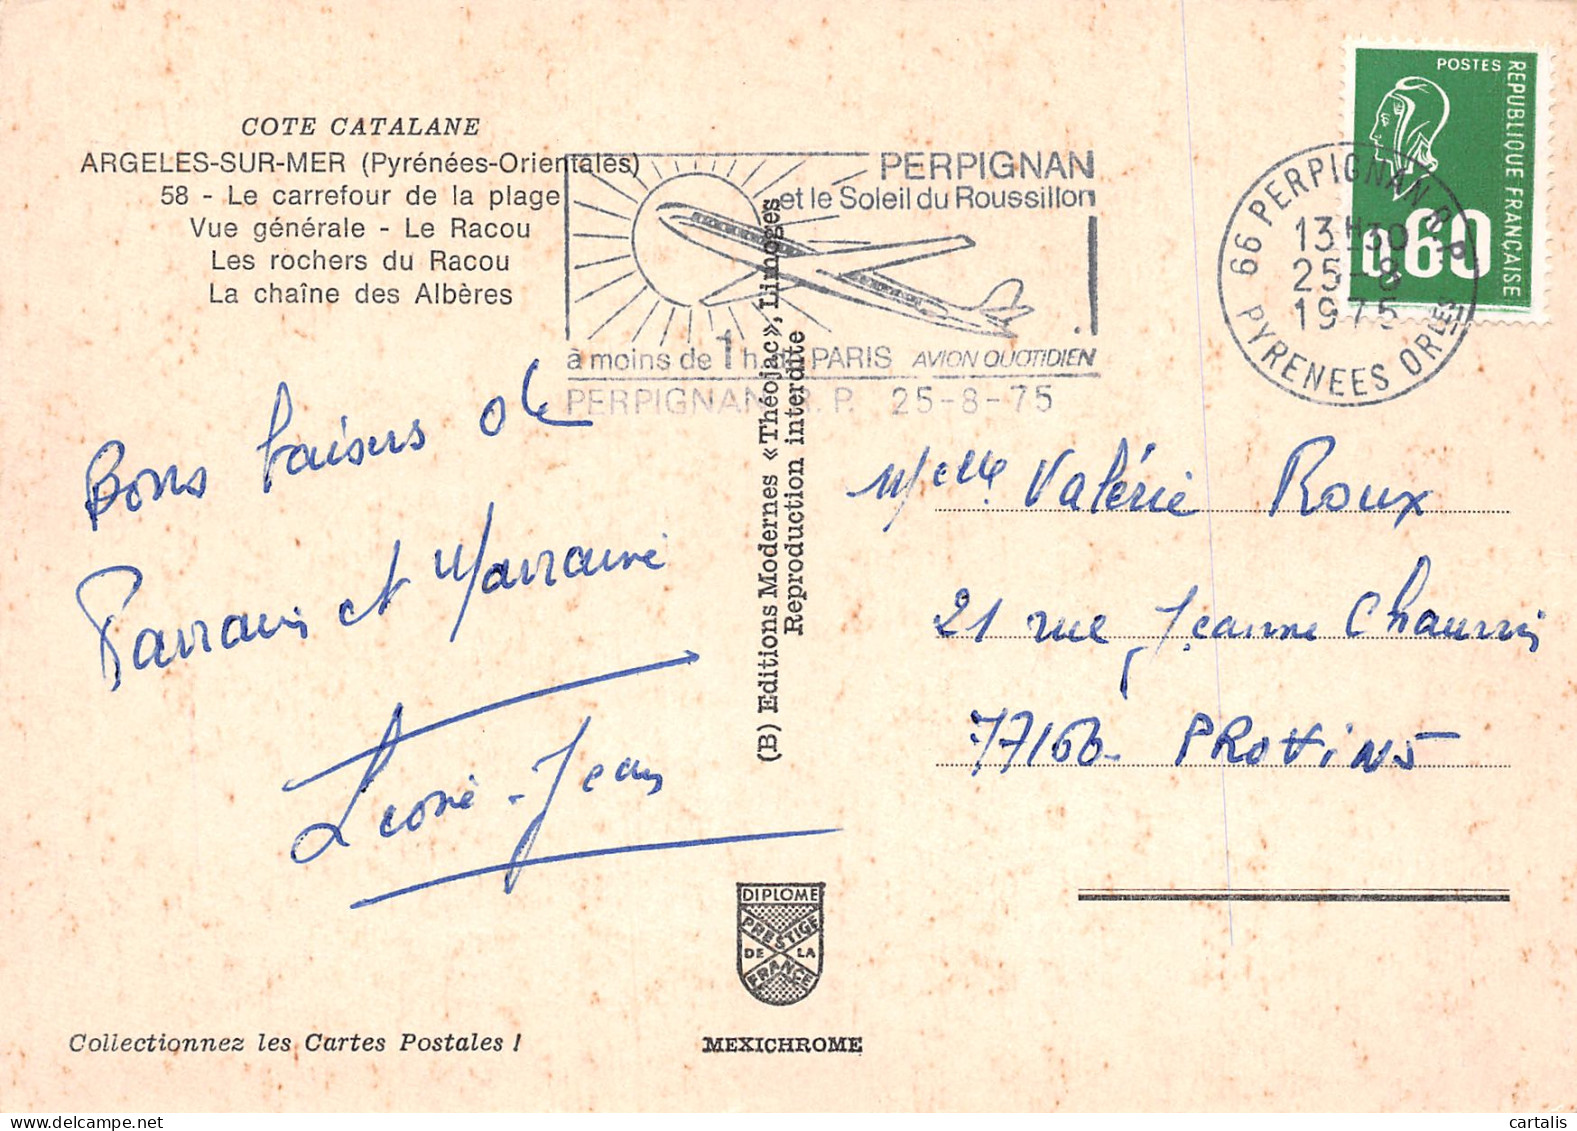 COTE CATALANE
ARGELES-SUR-MER (Pyrénées-Orientales)
58 - Le carrefour de la plage
Vue générale - Le Racou
Les rochers du Racou
La chaîne des Albères
PERPIGNAN
et le Soleil du Roussillon
à moins de 1 h. de PARIS AVION QUOTIDIEN
PERPIGNAN R.P. 25-8-75
POSTES
REPUBLIQUE FRANÇAISE
0.60
66 PERPIGNAN R.P.
13H30
25-8
1975
PYRENEES ORLES
Bons baisers de
Parrain et Marraine
Léone - Jean
(B) Editions Modernes «Théojac», Limoges
Reproduction interdite
Melle Valérie Roux
21 rue Jeanne
77160 - PROVINS
DIPLOME
PRESTIGE
DE LA
FRANCE
Collectionnez les Cartes Postales !
MEXICHROME
cartalis